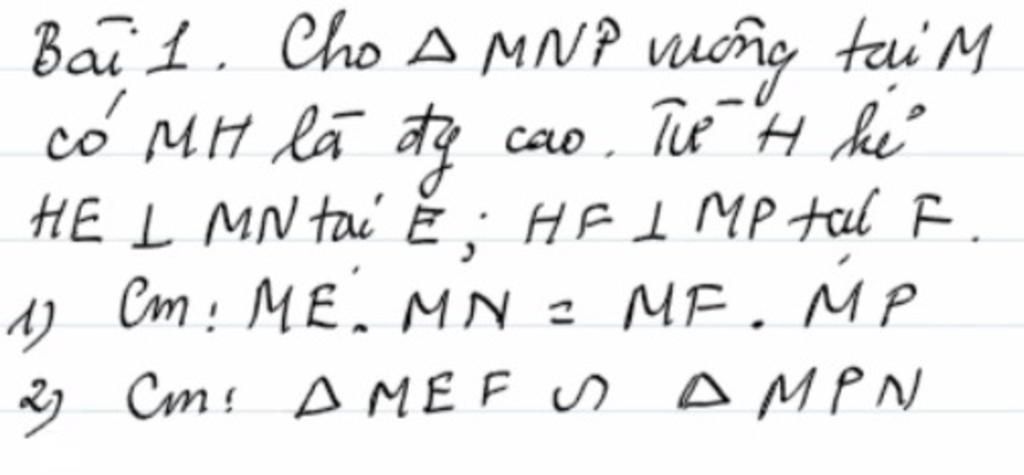 Bài 1. Cho Δ MNP vuông tại M
có MH là đg cao. Từ H kẻ
HE ⊥ MN tại E; HF ⊥ MP tại F.
1) Cm: ME. MN = MF. MP
2) Cm: Δ MEF ∽ Δ MPN